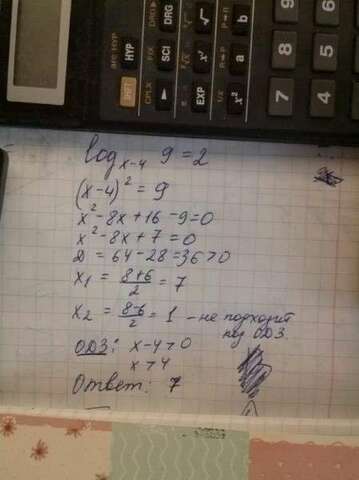 log x-4 9 = 2
(x-4)² = 9
x² - 8x + 16 - 9 = 0
x² - 8x + 7 = 0
D = 64 - 28 = 36 > 0
x₁ = (8+6)/2 = 7
x₂ = (8-6)/2 = 1 - не подходит
под ОДЗ.
ОДЗ: x - 4 > 0
x > 4
Ответ: 7
SHIFT HYP SCI DRG
EXP x² a b
7 4
8
9